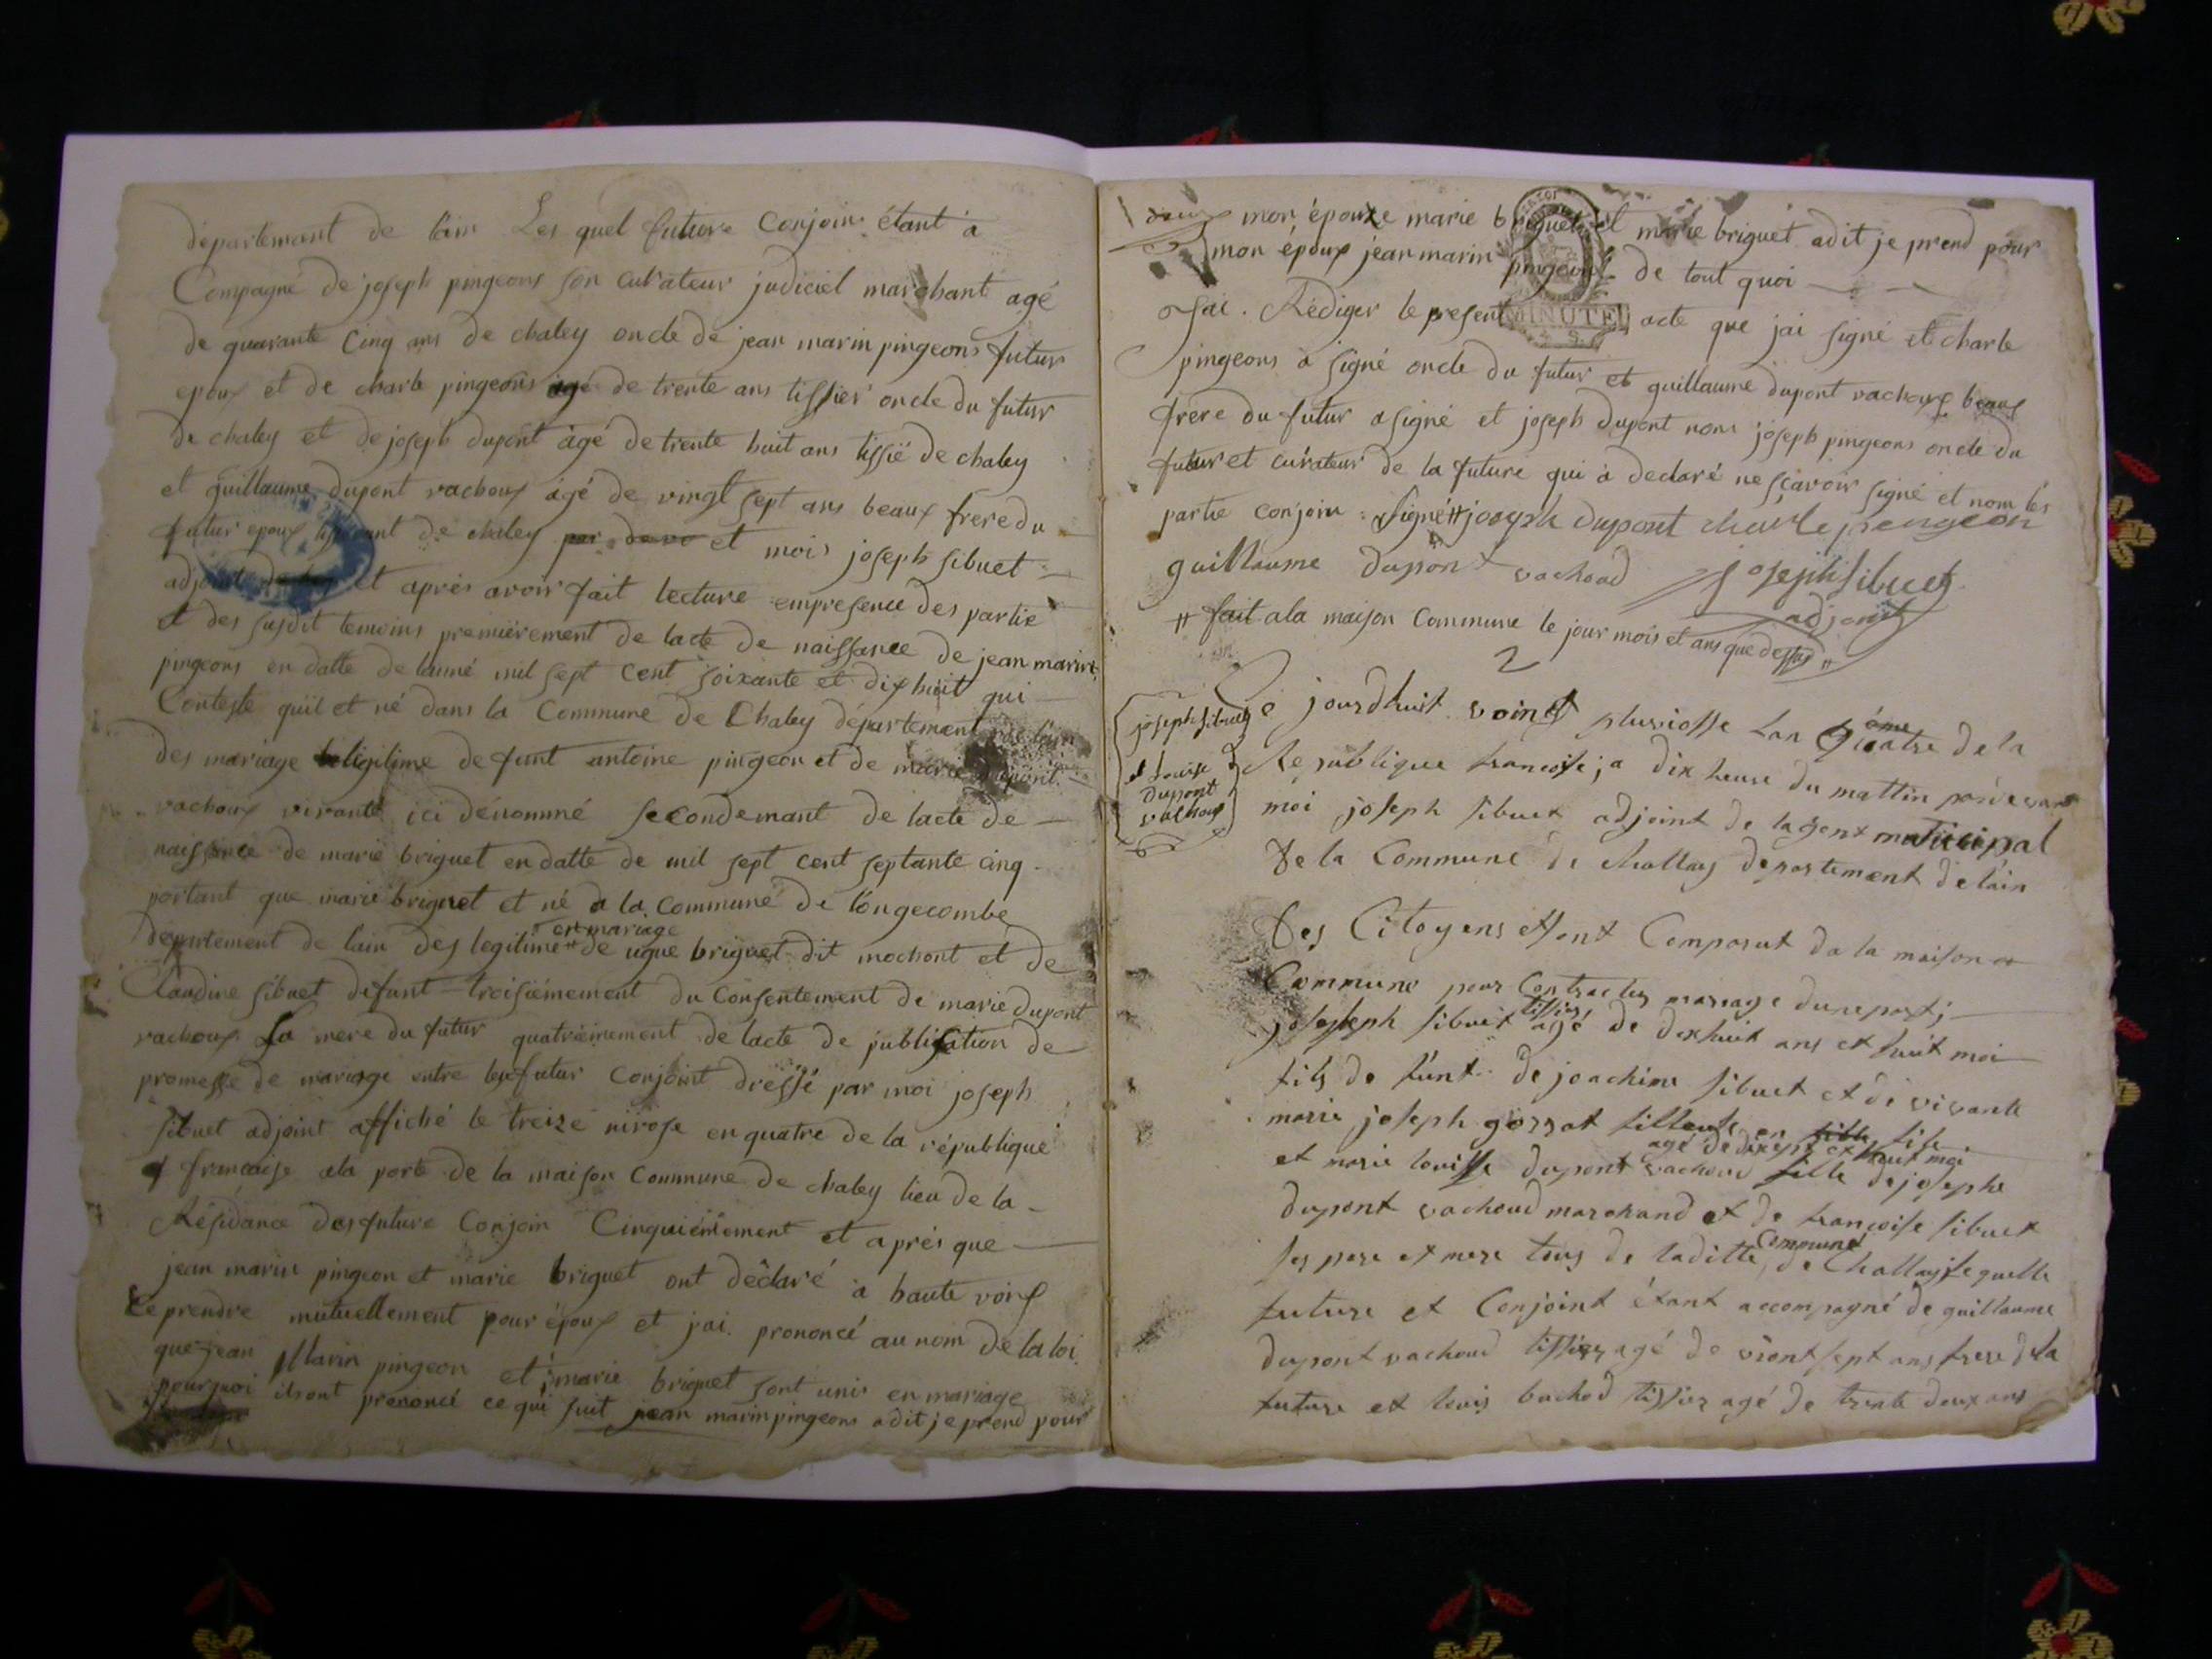 département de l'ain Les quel future Conjoin étant a
Compagné de joseph pingeons son curateur judiciel marchant agé
de quarante Cinq ans de chaley oncle de jean marin pingeons futur
epoux et de charle pingeons agé de trente ans tissier oncle du futur
de chaley et de joseph dupont agé de trente huit ans tissié de chaley
et guillaume dupont vachoux agé de vingt sept ans beaux frere du
futur epoux de chaley et mois joseph sibuet
adjoint et après avoir fait lecture empresence des partie
et des susdit temoins premièrement de lacte de naissance de jean marin
pingeons en datte de lanné mil sept cent soixante et dix huit qui
Conteste quil et né dans la Commune de Chaley département de lain
des mariage legitime defunt antoine pingeon et de marie dupont
vachoux vivante ici dénommé secondemant de lacte de
naissance de marie briguet en datte de mil sept cent septante cinq
portant que marie briguet et né a la Commune de longecombe
en mariage
département de lain des legitime de ugue briguet dit mochont et de
Claudine sibuet defunt troisièmement du Consentement de marie dupont
vachoux La mere du futur quatrièmement de lacte de publication de
promesse de mariage entre les futur Conjoint dressé par moi joseph
sibuet adjoint affiché le treize nivose en quatre de la république
francaise ala porte de la maison Commune de chaley lieu de la
Résidance des future Conjoin Cinquièmement et après que
jean marin pingeon et marie briguet ont déclaré à haute voix
se prendre mutuellement pour époux et jai prononcé au nom de la loi
que jean Marin pingeon et marie briguet sont unis en mariage
pourquoi ils ont prenoncé ce qui suit jean marin pingeons a dit je prend pour
mon épouze marie briguet et marie briguet a dit je prend pour
mon époux jean marin pingeons de tout quoi
jai Rédiger le present acte que jai signé et charle
MINUTE
pingeons a signé oncle du futur et guillaume dupont vachoux beaux
frère du futur a signé et joseph dupont nom joseph pingeons oncle du
futur et curateur de la future qui à declaré ne sçavoir signé et nom lés
partie conjoin signé joseph dupont charle pengeon
guillaume dupont vachoud joseph sibuet
adjoint
fait ala maison Commune le jour mois et ans que dessus
2
joseph sibuet
et louise
dupont
vachoux
Ce jourdhuit vointt pluviosse Lan quatre de la
Republique francoise, a dix heure du mattin pardevant
moi joseph sibuet adjoint de lagent municipal
De la Commune de Challey departement de lain
Des Citoyens sont Composut da la maison
Commune pour Contracter mariage dune part
tissier
joseph sibuet agé de dix huit ans et huit moi
fils de funt de joachim sibuet et de vivante
marie joseph gorrat
agé de dix sept et huit moi
et marie louisse dupont vachoud fille de josephe
dupont vachoud marchand et de françoise sibuet
Commune
ses pere et mere tous de laditte de Challey le quelle
future et Conjoint étant accompagné de guillaume
dupont vachoud tissier agé de vient sept ans frere de la
future et louis bachod tissier agé de trente deux ans